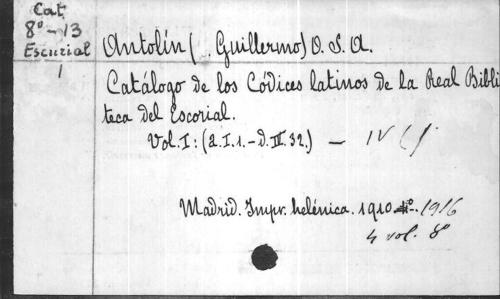 Cat
8º-13
Escurial
1
Antolín ( . . Guillermo) O. S. A.
Catálogo de los Códices latinos de la Real Biblio
teca del Escorial.
Vol. I: (a.I.1.-d.IV.32.) — IV
Madrid. Impr. helénica. 1910 1916
4 vol. 8º